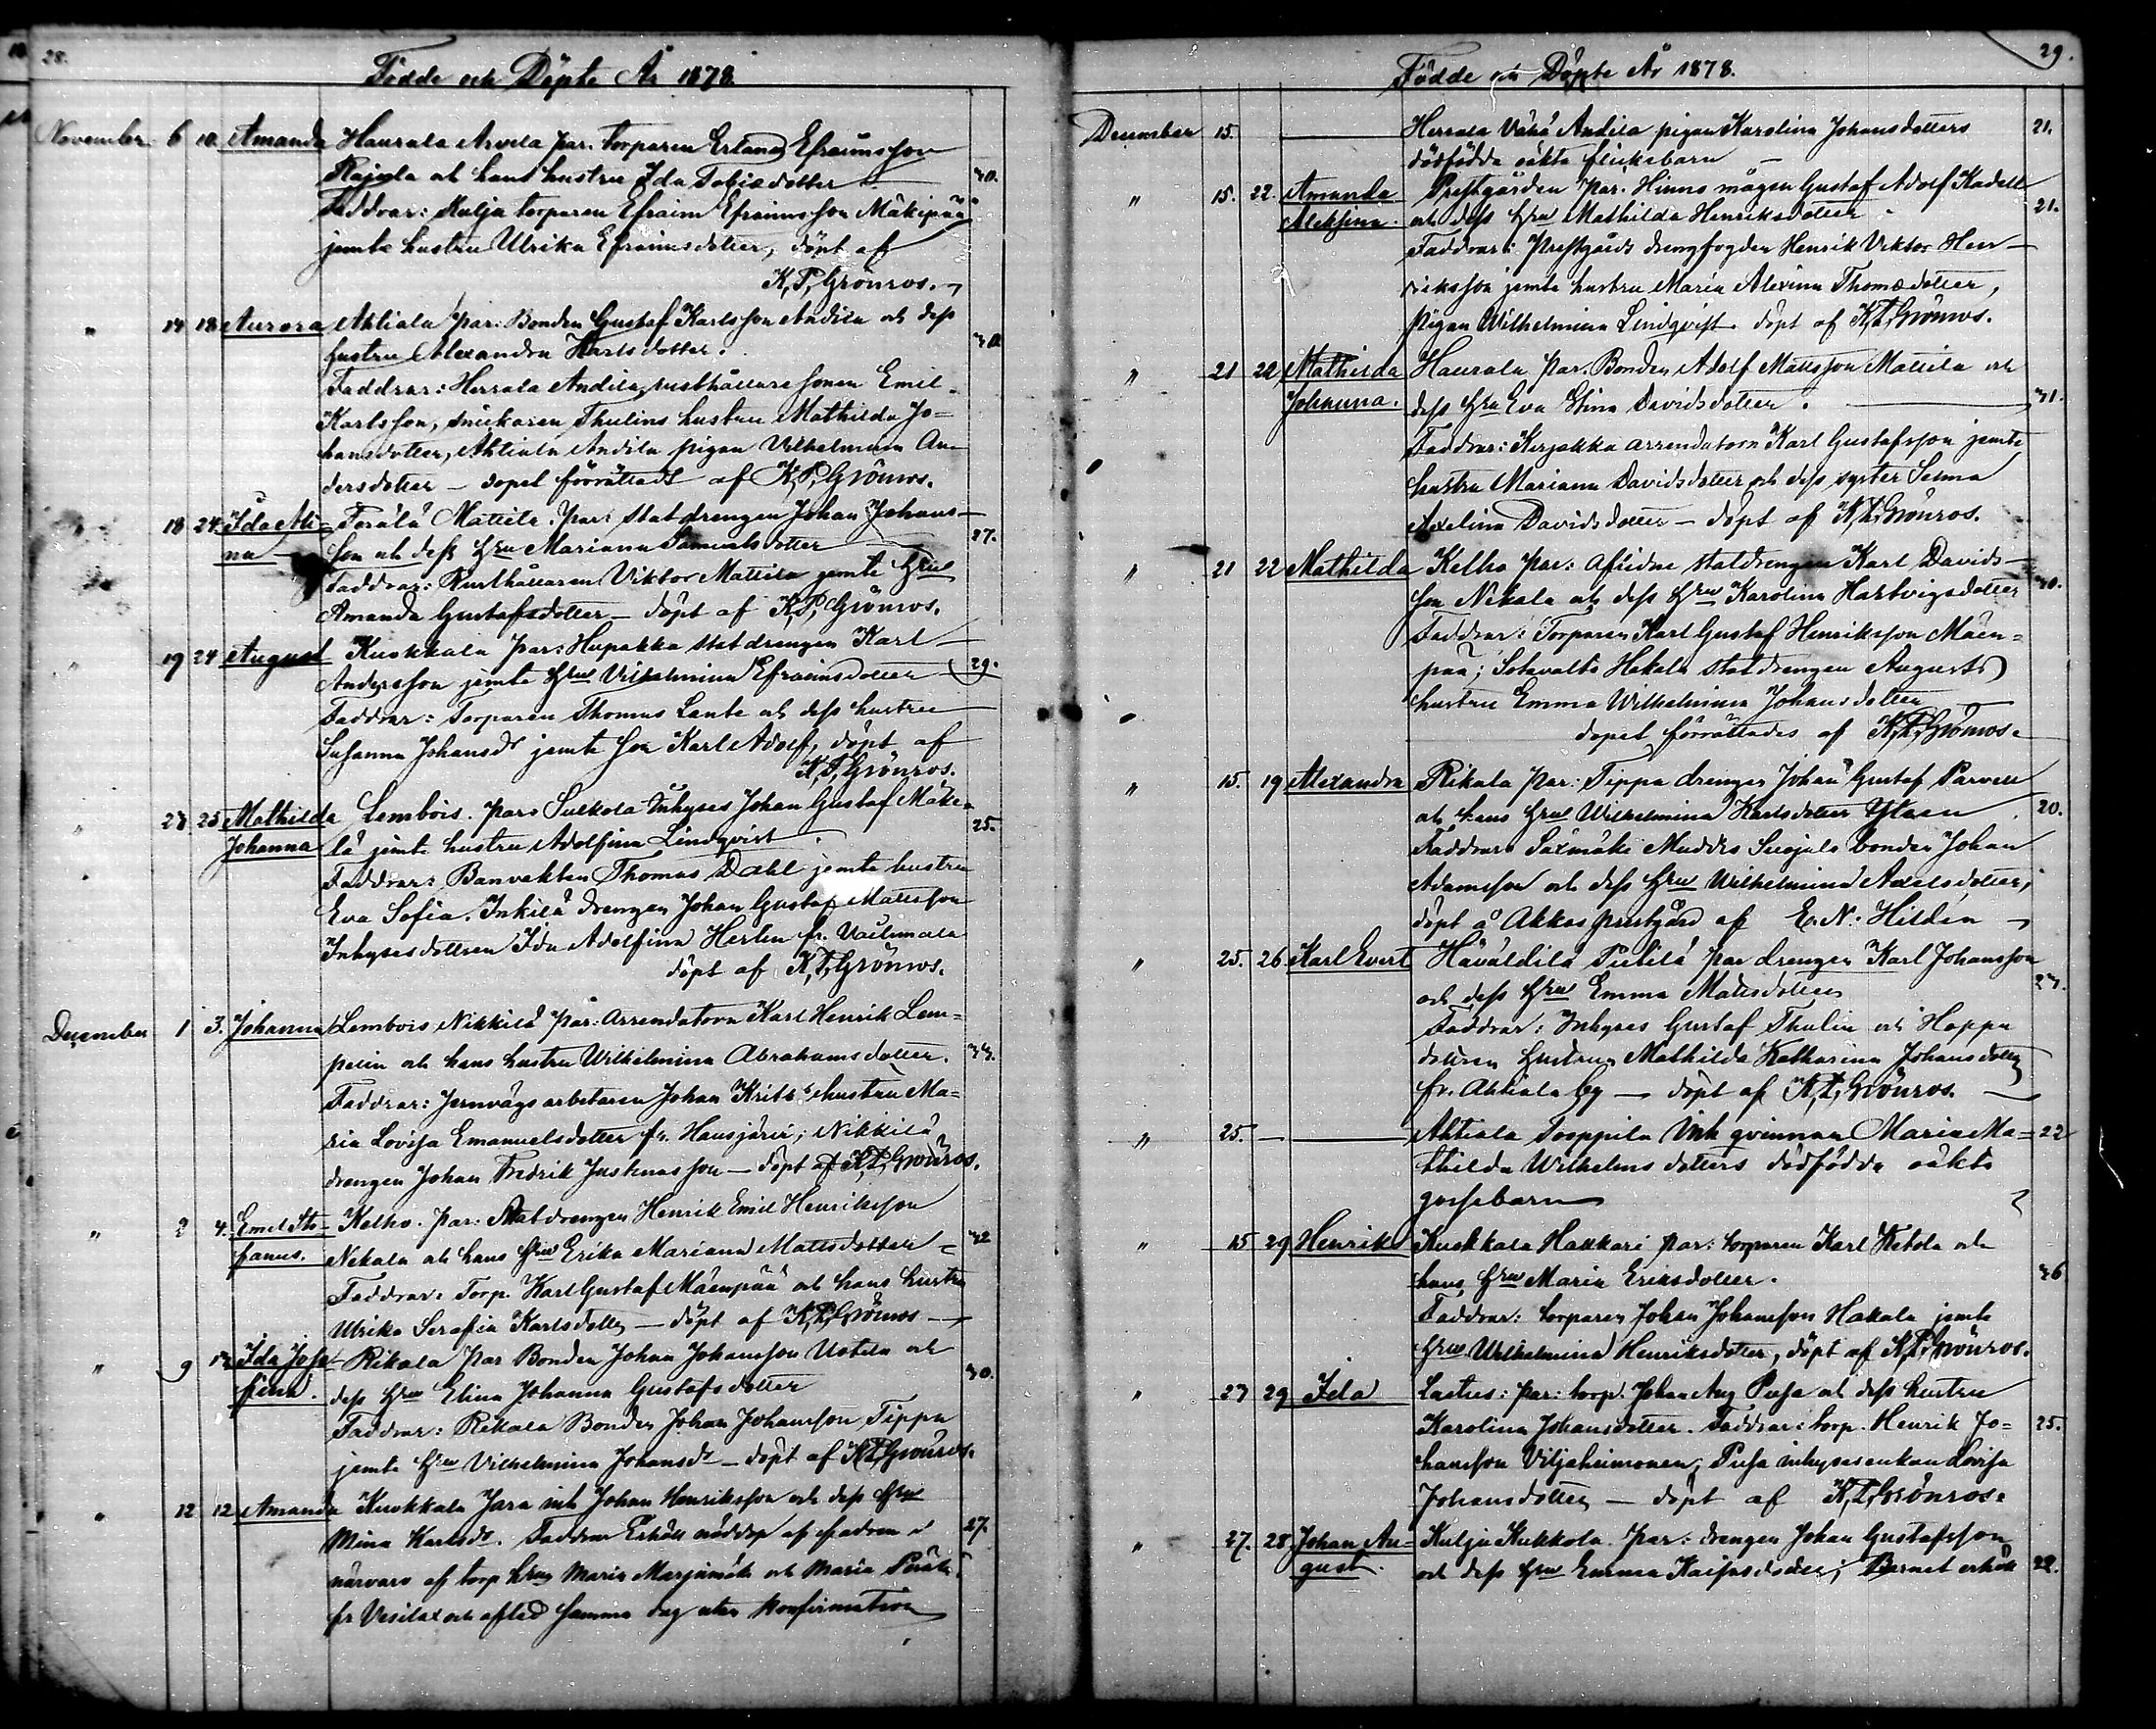 28.
Födde och Döpte År 1878
November 6 10. Amanda Haurala Arvela par. torparen Erland Efraimsson
Rajala och hans hustru Ida Tobiedotter
Faddrar: Kulju torparen Efraim Efraimsson Mäkipää
jemte hustru Ulrika Efraimsdotter, döpt af
K. T. Grönros.
" 14 18 Aurora Ahtiala par: Bonden Gustaf Karlsson Andila och dess
hustru Alexandra Karlsdotter.
Faddrar: Herrala Andila rusthållare sonen Emil
Karlsson, snickaren Thulins hustru Mathilda Jo=
hansdotter, Ahtiala Andila pigan Vilhelmina An
dersdotter — dopet förrättadt af K. T. Grönros.
18 24. Ida Ali= Mattila. par: statdrengen Johan Johans-
na son och dess Hru Mariana Samuelsdotter 27.
Faddrar: Rusthållaren Viktor Mattila jemte Hru
Amanda Gustafsdotter — döpt af K. T. Grönros.
" 19 24 August Kuokkala par: Hupakka statdrengen Karl
Andersson jemte Hru Vilhelmina Efraimsdotter 29.
Faddrar: Torparen Thomas Lante och dess hustru
Susanna Johansdr jemte son Karl Adolf, döpt af
K. T. Grönros.
" 23 25 Mathilda Lembois. par: Sulkola Inhyses Johan Gustaf Mäke=
Johanna lä jemte hustru Adolfina Lindqvist 25.
Faddrar: Banvakten Thomas Dahl jemte hustru
Eva Sofia. Inkilä drengen Johan Gustaf Mattsson
Inhysesdottren Ida Adolfina Herlin fr.
döpt af K. T. Grönros.
December 1 3. Johanna Lembois Nikkilä par: Arrendatorn Karl Henrik Lem=
pelin och hans hustru Wilhelmina Abrahamsdotter.
Faddrar: Jernvägsarbetaren Johan hustru Ma=
ria Lovisa Emanuelsdotter fr. Hausjärvi; Nikkilä
drengen Johan Fredrik — döpt af K. T. Grönros.
" 2 4. Emil Ste= Kelho. par: Statdrengen Henrik Emil Henriksson
fanus. Nekala och hans Hru Erika Mariana Mattsdotter
Faddrar: Torp. Karl Gustaf Mäenpää och hans hustru
Ulrika Serafia Karlsdotter — döpt af K. T. Grönros
" 9 Ida Jose= Rikala par Bonden Johan Johansson Uotila och
fina. dess Hru Elina Johanna Gustafsdotter
Faddrar: Rikala Bonden Johan Johansson Tippa
jemte Hru Vilhelmina Johansdr — döpt af K. T. Grönros.
" 12 12 Amanda Kuokkala Jara inh Johan Henriksson och dess Hru
Mina Karlsdr. Faddrar Erhöll nöddop af fadren i 27.
närvaro af torp Hru Maria Marjamäki och Maria
fr Vesilax och afled samma dag utan konfirmation
29.
Födde och Döpte År 1878.
December 15. — Herrala Vähä Andila pigan Karolina Johansdotters 21.
dödfödda oäkta flickebarn —
" 15. 22. Amanda Prestgården par. Hinno mågen Gustaf Adolf Kadell
Aleksina. och dess Hru Mathilda Henriksdotter 21.
Faddrar: Prestgårds drengfogden Henrik Viktor Hen-
riksson jemte hustru Maria Alexina Thomædotter,
Pigan Wilhelmina Lindqvist döpt af K. T. Grönros.
" 21 22 Mathilda Haurala par. Bonden Adolf Mattsson Mattila och
Johanna. dess Hru Eva Stina Davidsdotter.
Faddrar: arrendatorn Karl Gustafsson jemte
hustru Mariana Davidsdotter och dess syster Selma
Axelina Davidsdotter — döpt af K. T. Grönros.
" 21 22 Mathilda Kelho par: aflidne statdrengen Karl Davids-
son Nikala och dess Hru Karolina Hartvigsdotter
Faddrar: Torparen Karl Gustaf Henriksson Mäen=
pää; Sotavalta Hakala statdrengen Augusts
hustru Emma Wilhelmina Johansdotter
dopet förrättades af K. T. Grönros.
" 15. 19 Alexandra Rikala par: Tippa drengen Johan Gustaf Parvell
och hans Hru Wilhelmina Karlsdotter 20.
Faddrar: Säxmäki bonden Johan
Adamsson och dess Hru Wilhelmina Axelsdotter,
döpt å Akkas prestgård af E. N. Hildén
" 25. 26. Karl Evert Hauvaldila par drengen Karl Johansson
och dess Hru Emma Mattsdotter
Faddrar: Inhyses Gustaf Thulin och Hoppu
dottren Hustrun Mathilda Katharina Johansdotter
fr. Ahtiala by — döpt af K. T. Grönros.
" 25. — Ahtiala Sorppila Inh qvinnan Maria Ma= 22
thilda Wilhelms dotters dödfödda oäkta
gossebarn
" 15 29 Henrik Kuokkala Hakkari par: torparen Karl Ketola och
hans Hru Maria Eriksdotter.
Faddrar: torparen Johan Johansson Hakala jemte
Hru Wilhelmina Henriksdotter, döpt af K. T. Grönros.
" 23 29 Ida Lastus: par: torp. Johan Aug Pusa och dess hustru
Karolina Johansdotter. Faddrar: torp. Henrik Jo= 25.
hansson Viljaheimonen; Pusa inhysesenkan Lovisa
Johansdotter — döpt af K. T. Grönros.
" 27. 28. Johan Au= Kulju Kukkola. par: drengen Johan Gustafsson
gust. och dess Hru Emma Kaisasdotter; Barnet erhöll 22.